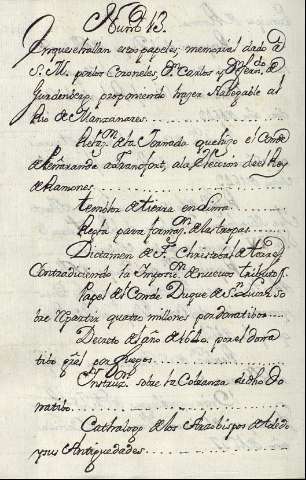 Num.º 13.
En que se hallan estos papeles, memorial dado a
S. M. por los Coroneles D.n Carlos y D.n Fern.do de
Grunenbergh proponiendo hazer Nabegable al
Rio de Manzanares
Relaz.n de la Jornada que hizo el Conde
de Peñaranda a Francfort, a la Eleccion de el Rey
de Romanos
temblor de tierra en Lima
Regla para formaz.n de las tropas
Dictamen de F.r Christoval de
Contradiciendo la Imposiz.n de nuevos tributos
Papel de el Conde Duque de S.n Lucar so
bre Repartir quatro millones por donatibos
Decreto de el año de 1640. por el dona
tibo g̃ral por fuegos
Instruz.on sobre la Cobranza de dho do
natibo
Cathalogo de los Arzobispos de toledo
y sus Antiguedades